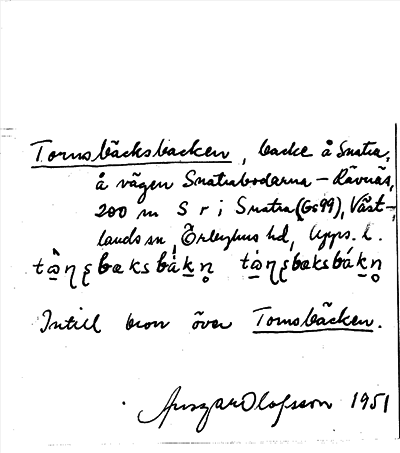 Tornsbäcksbacken, backe å Snatra,
å vägen Snatrabodarna - Rävnäs,
200 m S r i Snatra (Gs99), Väst-
lands sn, Örbyhus hd, Upps. l.
Intill bron över Tornsbäcken.
Ansgar Olofsson 1951